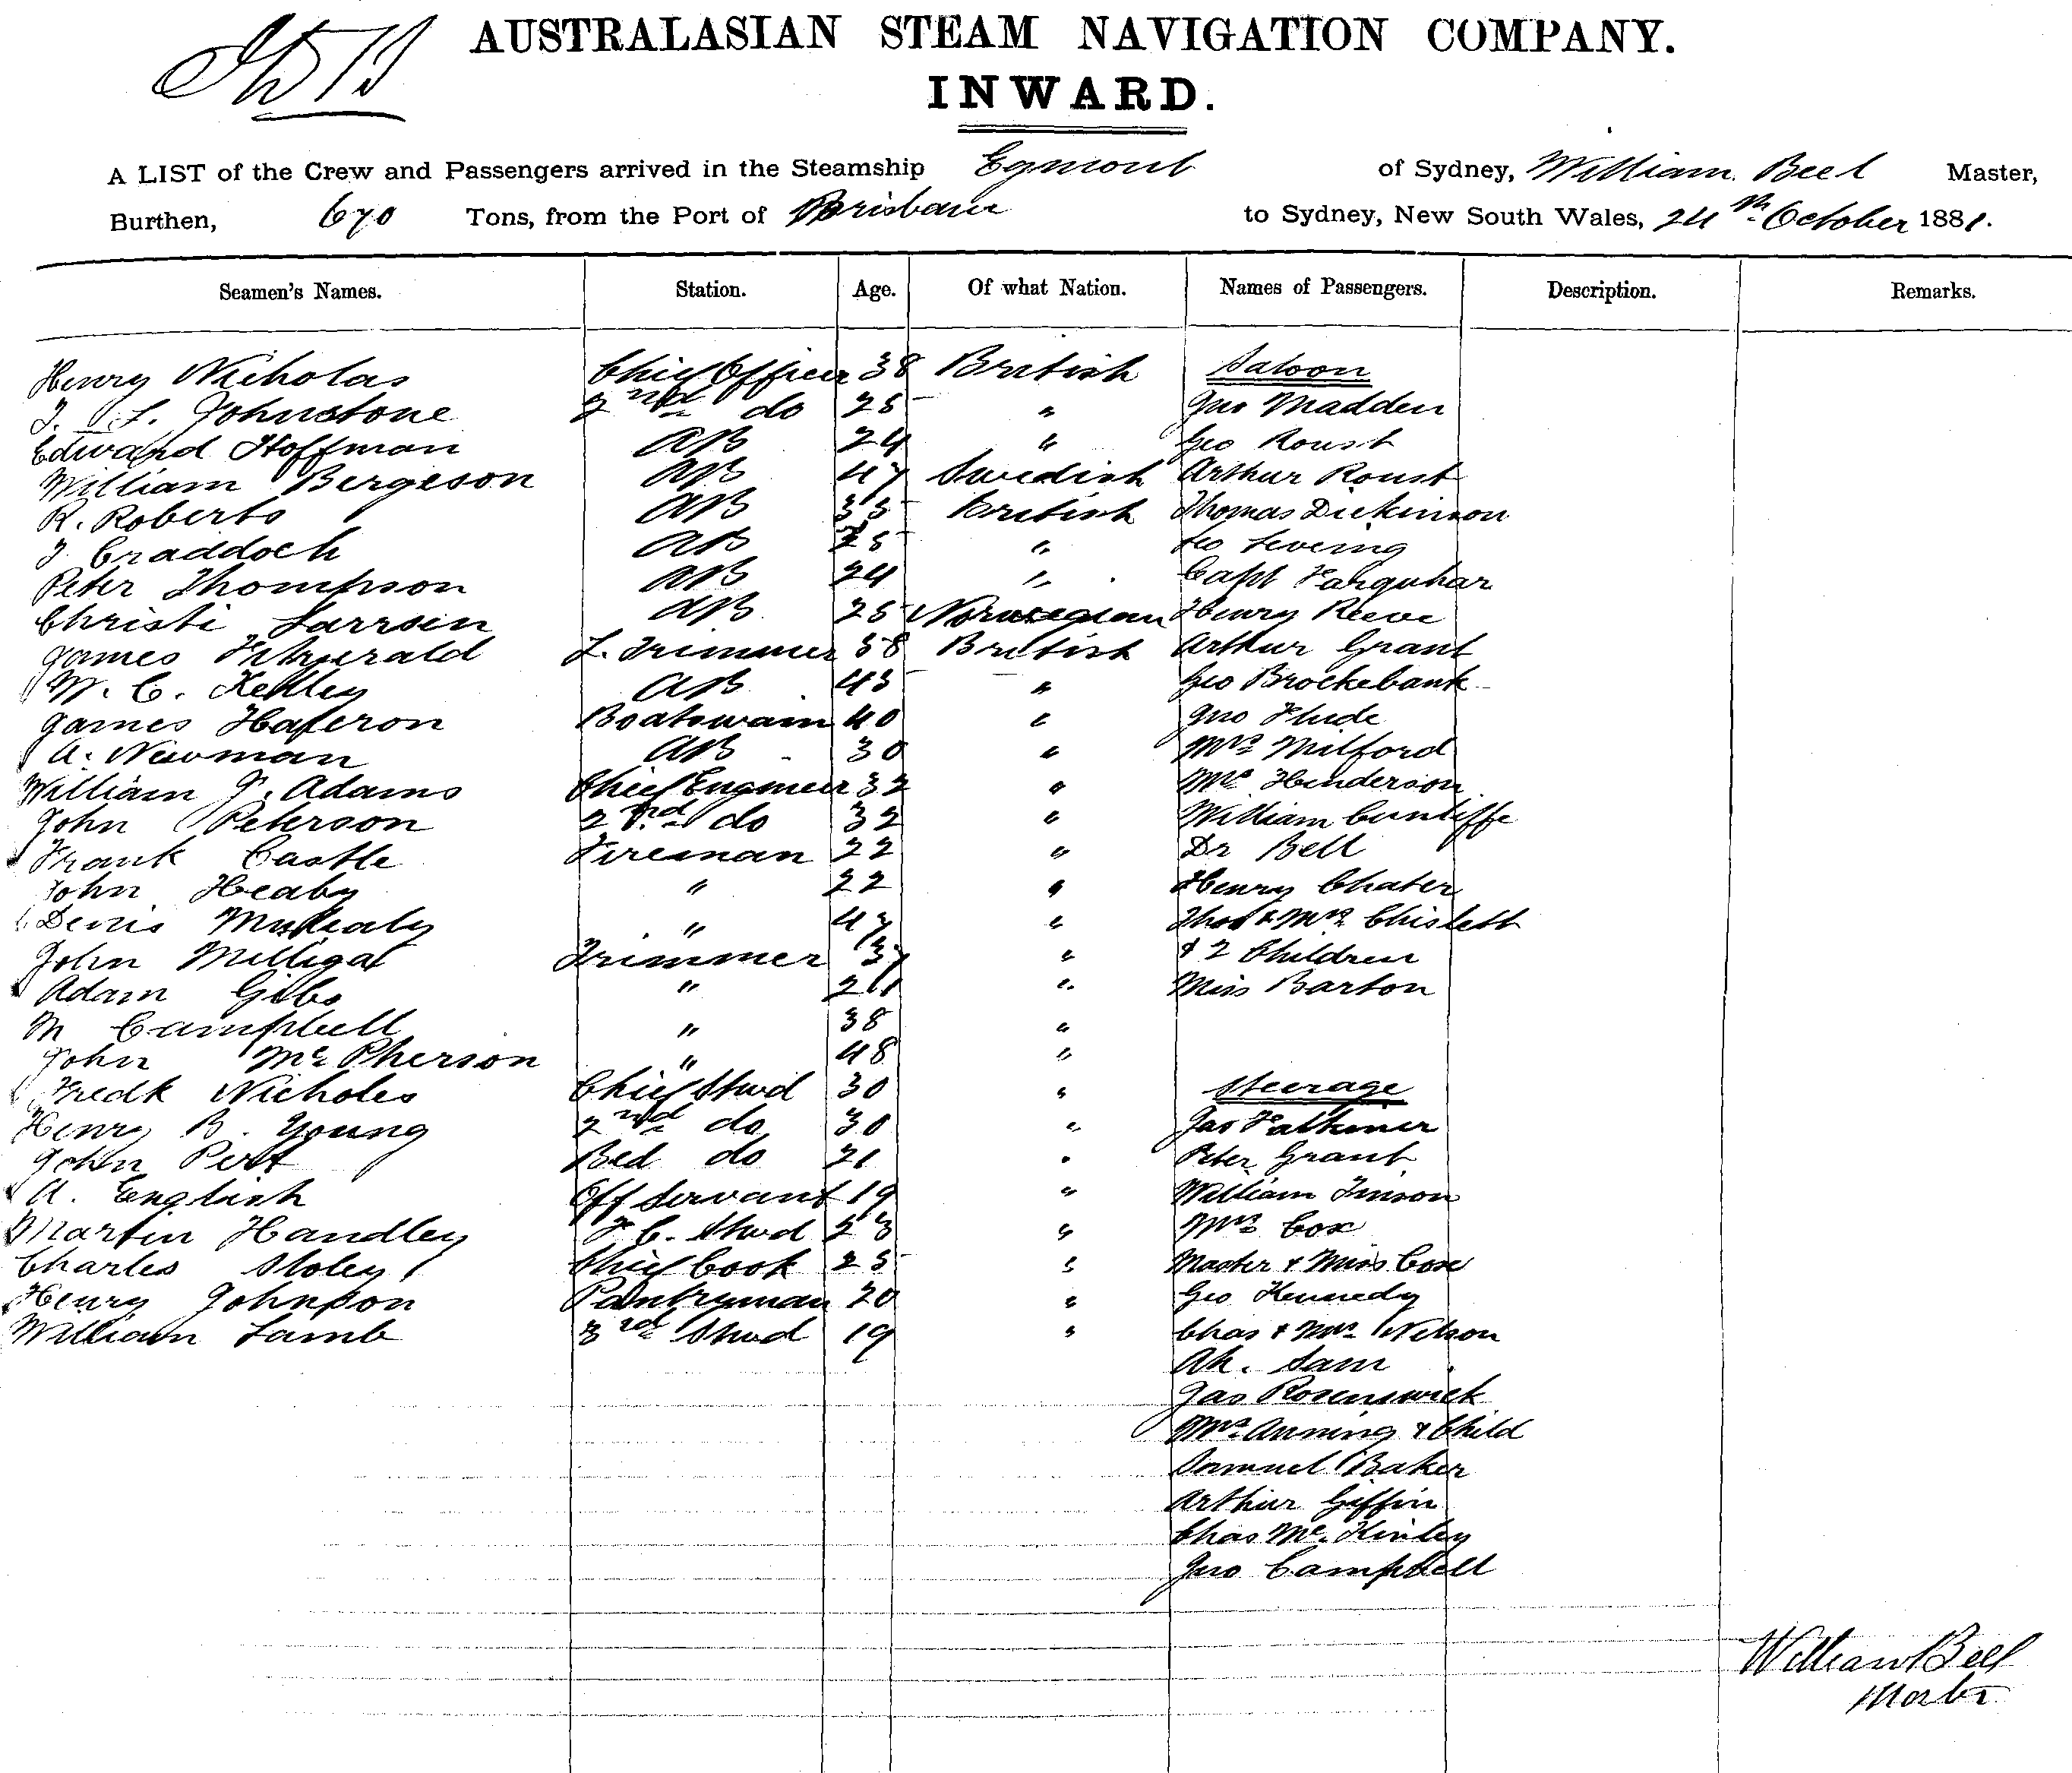 AUSTRALASIAN STEAM NAVIGATION COMPANY.
INWARD.
A LIST of the Crew and Passengers arrived in the Steamship Egmont of Sydney, William Bell Master,
Burthen, 670 Tons, from the Port of Brisbane to Sydney, New South Wales, 24th October 1881.
Seamen's Names. Station. Age. Of what Nation. Names of Passengers. Description. Remarks.
Henry Nicholas Chief Officer 38 British Saloon
J. L. Johnstone 2nd do 25 " Jno Madden
Edward Hoffman AB 24 " Geo Roust
William Bergeson AB 47 Swedish Arthur Roust
R. Roberts AB 35 British Thomas Dickinson
J Craddock AB 25 " Levering
Peter Thompson AB 24 " Capt Farquhar
Christi Larrsen AB 25 Norwegian Henry Reeve
James Fitzgerald L. Trimmer 38 British Arthur Grant
W. C. Kelley AB 43 " Geo Brockebank
James Haferon Boatswain 40 " Jno Flude
A. Newman AB 30 " Mrs Milford
William J. Adams Chief Engineer 32 " Henderson
John Peterson 2nd do 32 " William Cunliffe
Frank Castle Fireman 22 " Dr Bell
John Heaby " 22 " Henry Chater
Denis " 47 " Thos & Mrs Chislett
John Milligat Trimmer 37 " & 2 Children
Adam Gibs " 21 " Miss Barton
M Campbell " 38 "
John McPherson " 48 "
Fredk Nicholes Chief Stwd 30 " Steerage
Henry B. Young 2nd do 30 " Jas Falkiner
John Pert Bed do 21 " Peter Grant
A. English Off Servant 19 " William Tinson
Martin Handley F. C. Stwd 23 " Mrs Cox
Charles Stoley Chief Cook 25 " Master & Miss Cox
Henry Johnson Pantryman 20 " Geo Kennedy
William Lamb 3rd Stwd 19 " Chas & Mrs Nelson
Ah. Sam
Jas Rosenswick
Mrs Anning & Child
Samuel Baker
Arthur Giffin
Chas McKinley
Jno Campbell
William Bell
Master